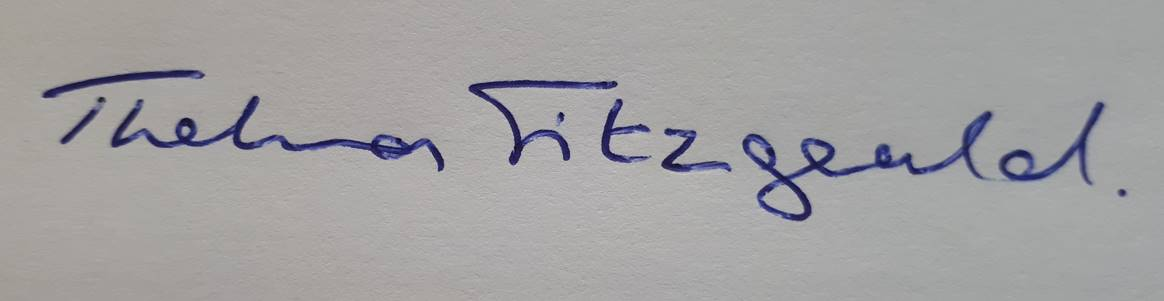 Thelma Fitzgerald.